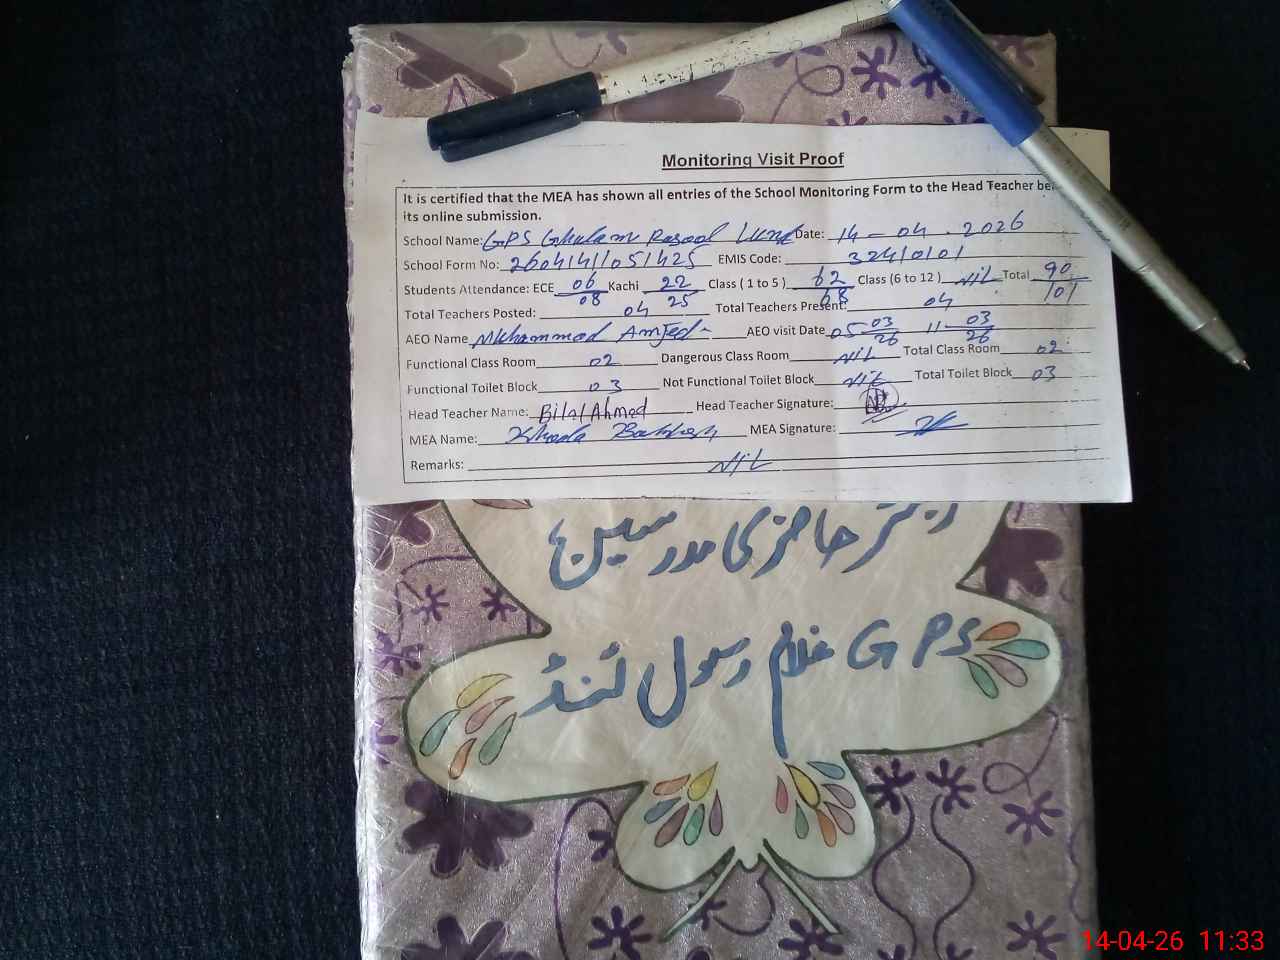 Monitoring Visit Proof
It is certified that the MEA has shown all entries of the School Monitoring Form to the Head Teacher
its online submission.
School Name: GPS Ghulam Rasool Lund Date: 14-04.2026
School Form No: 26041411051425 EMIS Code: 32410101
Students Attendance: ECE 06/08 Kachi 22/25 Class ( 1 to 5 ) 62/68 Class (6 to 12 ) NIL Total 90/101
Total Teachers Posted: 04 Total Teachers Present: 04
AEO Name Muhammad Amjed AEO visit Date 05-03/26 11-03/26
Functional Class Room 02 Dangerous Class Room NIL Total Class Room 02
Functional Toilet Block 03 Not Functional Toilet Block NIL Total Toilet Block 03
Head Teacher Name: Bilal Ahmed Head Teacher Signature:
MEA Name: Khuda Bakhsh MEA Signature:
Remarks: NIL
حاضری مدرسین
GPS غلام رسول لنڈ
14-04-26 11:33